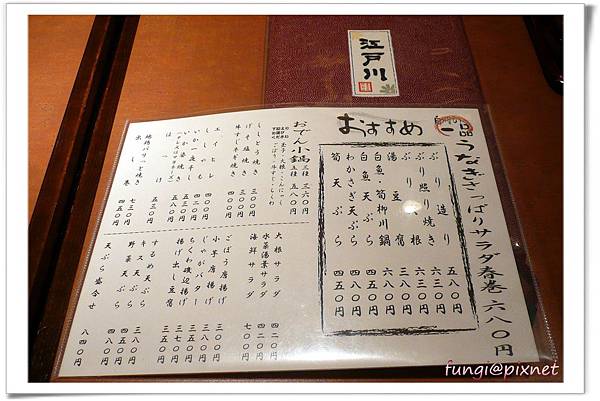 江戸川
一品
うなぎさっぱりサラダ春巻 六八〇円
おすすめ
ぶり造り 五八〇円
ぶり照り焼き 四五〇円
ぶり大根 三八〇円
湯豆腐 三八〇円
白魚筍柳川鍋 六八〇円
白魚天ぷら 五五〇円
わかさぎ天ぷら 四五〇円
筍天ぷら 四五〇円
おでん小高 三種 三六〇円
五種 五八〇円
ししとう焼き 三〇〇円
げそ塩焼き 三〇〇円
牛すじねぎ焼き
エイヒレ
ししゃも
いか一夜干し
いか姿焼き
ほっけ 五五〇円
地鶏パリッと焼き 七三〇円
出し巻 四五〇円
大根サラダ 四二〇円
水菜湯葉サラダ 四二〇円
海鮮サラダ 七〇〇円
ごぼう唐揚げ 三〇〇円
小芋唐揚げ 三八〇円
じゃがバター 三五〇円
ちくわ磯辺揚げ 三七〇円
揚げ出し豆腐 三五〇円
するめ天ぷら 三八〇円
キス天ぷら 四五〇円
野菜天ぷら 四八〇円
天ぷら盛合せ 八四〇円
fungi@pixnet